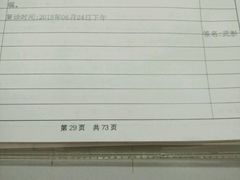 复诊时间:2018年06月24日下午
签名:
第29页 共73页